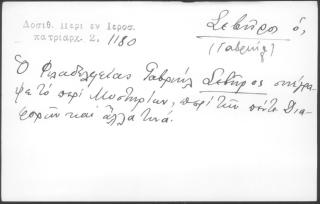 Δοσιθ. Περι εν Ιεροσ.
πατριαρχ. 2, 1180
Σεβῆρος ὁ,
(Γαβριήλ)
Ὁ Φιλαδελφείας Γαβριήλ Σεβῆρος συνέγρα-
ψε τό περί Μυστηρίων, περί τῶν πέντε Δια-
φορῶν καί ἄλλα τινά.